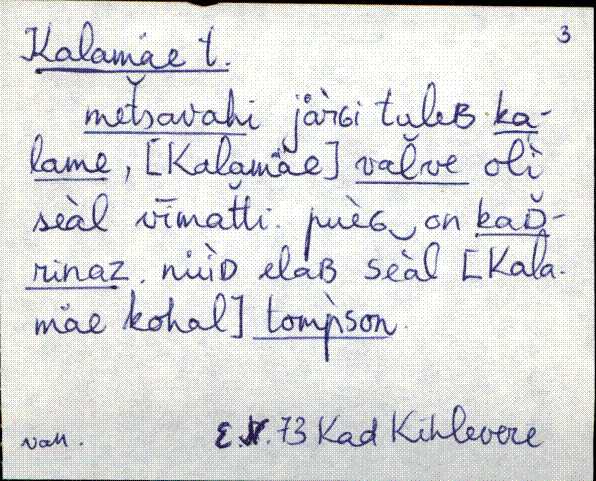 3
Kalamäe t.
metšavahi järGi tuleB ka-
lame, [Kalamäe] vaľve olì
seàl vīmatti. puèG on kaĎ-
rinaz. nüìD elaB seàl [Kala-
mäe kohal] tomṕson.
van. E. V. 73 Kad Kihlevere